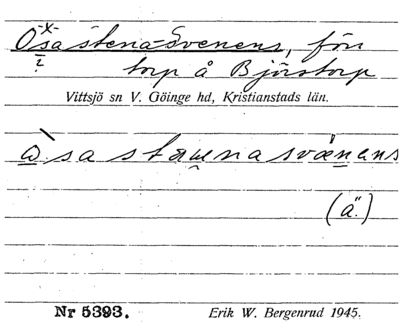 Osastena-Svenens, förs
torp å Björstorp
Vittsjö sn V. Göinge hd, Kristianstads län.
(ä.)
Nr 5393. Erik W. Bergenrud 1945.